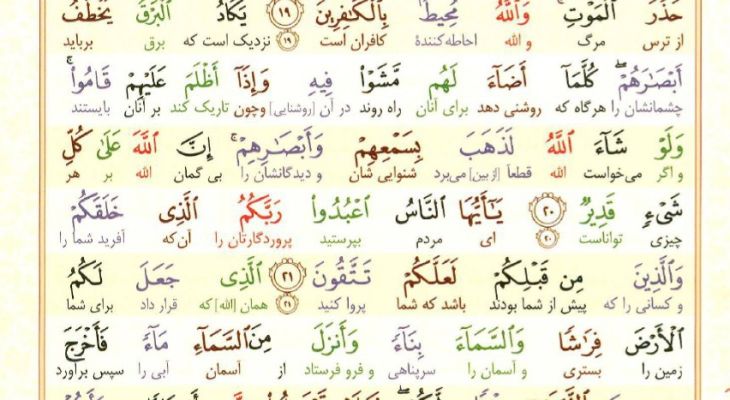 حَذَرَ ٱلْمَوْتِ ۚ وَٱللَّهُ مُحِيطٌۢ بِٱلْكَٰفِرِينَ ١٩ يَكَادُ ٱلْبَرْقُ يَخْطَفُ
از ترس مرگ و الله احاطه‌کنندهٔ کافران است ١٩ نزدیک است که برق برباید
أَبْصَٰرَهُمْ ۖ كُلَّمَآ أَضَآءَ لَهُم مَّشَوْا۟ فِيهِ وَإِذَآ أَظْلَمَ عَلَيْهِمْ قَامُوا۟ ۚ
چشمانشان را هرگاه که روشنی دهد برای آنان راه روند در آن [روشنایی] وچون تاریک کند بر آنان بایستند
وَلَوْ شَآءَ ٱللَّهُ لَذَهَبَ بِسَمْعِهِمْ وَأَبْصَٰرِهِمْ ۚ إِنَّ ٱللَّهَ عَلَىٰ كُلِّ
و اگر می‌خواست الله قطعاً [از بین] می‌برد شنوایی شان و دیدگانشان را بی گمان الله بر هر
شَىْءٍ قَدِيرٌ ٢٠ يَٰٓأَيُّهَا ٱلنَّاسُ ٱعْبُدُوا۟ رَبَّكُمُ ٱلَّذِى خَلَقَكُمْ
چیزی تواناست ٢٠ ای مردم بپرستید پروردگارتان را آن‌که آفرید شما را
وَٱلَّذِينَ مِن قَبْلِكُمْ لَعَلَّكُمْ تَتَّقُونَ ٢١ ٱلَّذِى جَعَلَ لَكُمُ
و کسانی را که پیش از شما بودند باشد که شما پروا کنید ٢١ همان [الله] که قرار داد برای شما
ٱلْأَرْضَ فِرَٰشًا وَٱلسَّمَآءَ بِنَآءً وَأَنزَلَ مِنَ ٱلسَّمَآءِ مَآءً فَأَخْرَجَ
زمین را بستری و آسمان را سرپناهی و فرو فرستاد از آسمان آبی را سپس برآورد